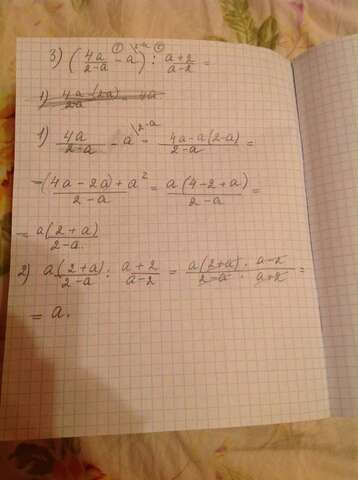 3) (4a/2-a ① - a \2-a) ② : a+2/a-2 =
1) 4a-(2a)/2a = 4a
1) 4a/2-a - a \2-a = 4a-a(2-a)/2-a =
= (4a-2a)+a²/2-a = a(4-2+a)/2-a =
= a(2+a)/2-a.
2) a(2+a)/2-a : a+2/a-2 = a(2+a) · a-2/2-a · a+2 =
= a.